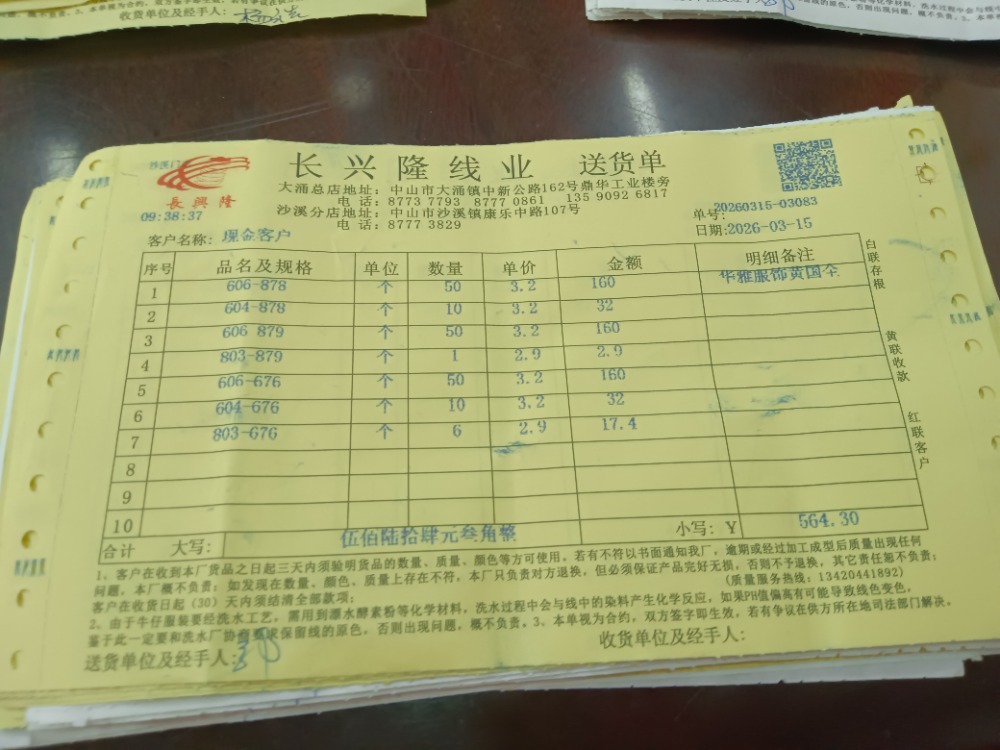 收货单位及经手人:
长兴隆线业 送货单
長興隆
大涌总店地址: 中山市大涌镇中新公路162号鼎华工业楼旁
电 话: 8773 7793 8777 0861 135 9092 6817
沙溪分店地址: 中山市沙溪镇康乐中路107号
电 话: 8777 3829
09:38:37
单号: 20260315-03083
客户名称: 现金客户
日期:2026-03-15
序号 品名及规格 单位 数量 单价 金额 明细备注
1 606-878 个 50 3.2 160 华雅服饰黄国
2 604-878 个 10 3.2 32
3 606 879 个 50 3.2 160
4 803-879 个 1 2.9 2.9
5 606-676 个 50 3.2 160
6 604-676 个 10 3.2 32
7 803-676 个 6 2.9 17.4
8
9
10
合计 大写: 伍佰陆拾肆元叁角整 小写: Y 564.30
白联存根
黄联收款
红联客户
1、客户在收到本厂货品之日起三天内须验明货品的数量、质量、颜色等方可使用。若有不符以书面通知我厂，逾期或经过加工成型后质量出现任何
问题，本厂概不负责；如发现在数量、颜色、质量上存在不符，本厂只负责对方退换，但必须保证产品完好无损，否则不予退换，其它责任恕不负责；
客户在收货日起（30）天内须结清全部款项； (质量服务热线: 13420441892)
2、由于牛仔服装要经洗水工艺，需用到漂水酵素粉等化学材料，洗水过程中会与线中的染料产生化学反应，如果PH值偏高有可能导致线色变色，
鉴于此一定要和洗水厂协商要求保留线的原色，否则出现问题，概不负责。3、本单视为合约，双方签字即生效，若有争议在供方所在地司法部门解决。
送货单位及经手人:
收货单位及经手人: